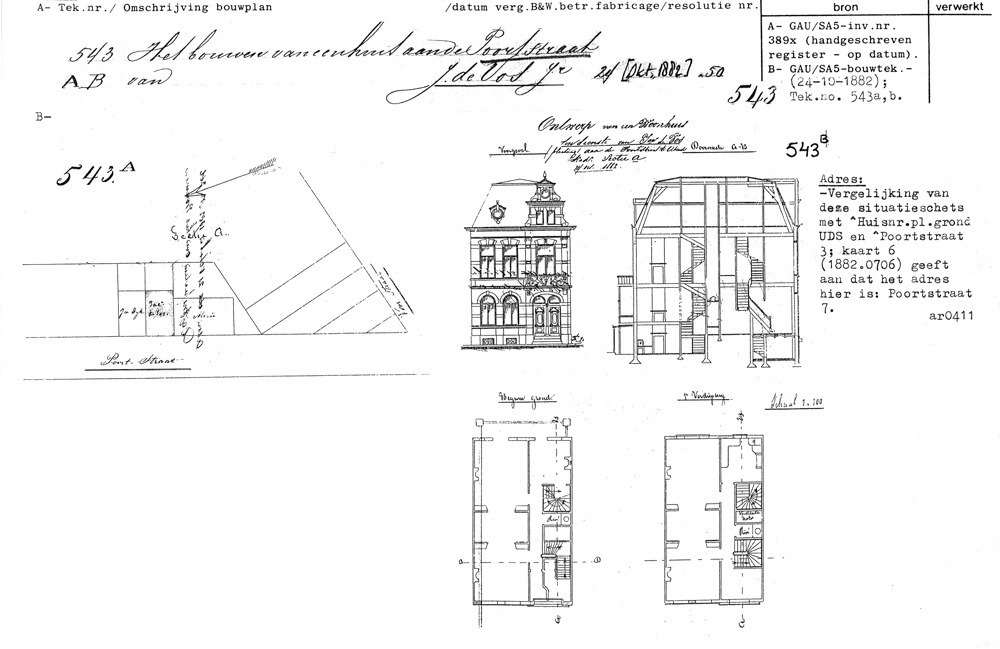 A- Tek.nr./ Omschrijving bouwplan /datum verg.B&W.betr.fabricage/resolutie nr. bron verwerkt
543 Het bouwen van een huis aan de Poortstraat
A B van J. de Vos Jr 24 [Okt. 1882] 50
543
A- GAU/SA5-inv.nr.
389x (handgeschreven
register - op datum).
B- GAU/SA5-bouwtek.-
(24-10-1882);
Tek.no. 543a,b.
B-
543.A
Sectie A.
Poort-Straat
Ontwerp van een Woonhuis
Voorgevel
aan de
Doorsnede A-B
Sectie A
543B
Adres:
-Vergelijking van
deze situatieschets
met ^Huisnr.pl.grond
UDS en ^Poortstraat
3; kaart 6
(1882.0706) geeft
aan dat het adres
hier is: Poortstraat
7.
ar0411
Begane grond
1e Verdieping
Schaal 1:100